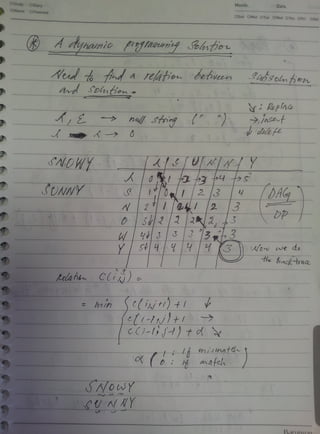 Month: Date:
A dynamic programming Solution
Need to find a relation between subsolution
and solution.
↘: Replace
λ, ε → null string (" ") → insert
λ → λ → 0 ↓ delete
SNOWY λ S U N N Y
SUNNY λ 0 1 2 3 4 5
S 1 0 1 2 3 4
N 2 1 1 2 3
O 3 2 2 2 2 3
W 4 3 3 3 3 3
Y 5 4 4 4 4 3
DAG
DP
Now we do
the backtrace
Relation C(i,j) =
= min { c(i,j-1)+1 ↓
c(i-1,j)+1 →
c(i-1,j-1)+α ↘
α ( 1 : if mismatch
0 : if match )
SNOWY
SUNNY